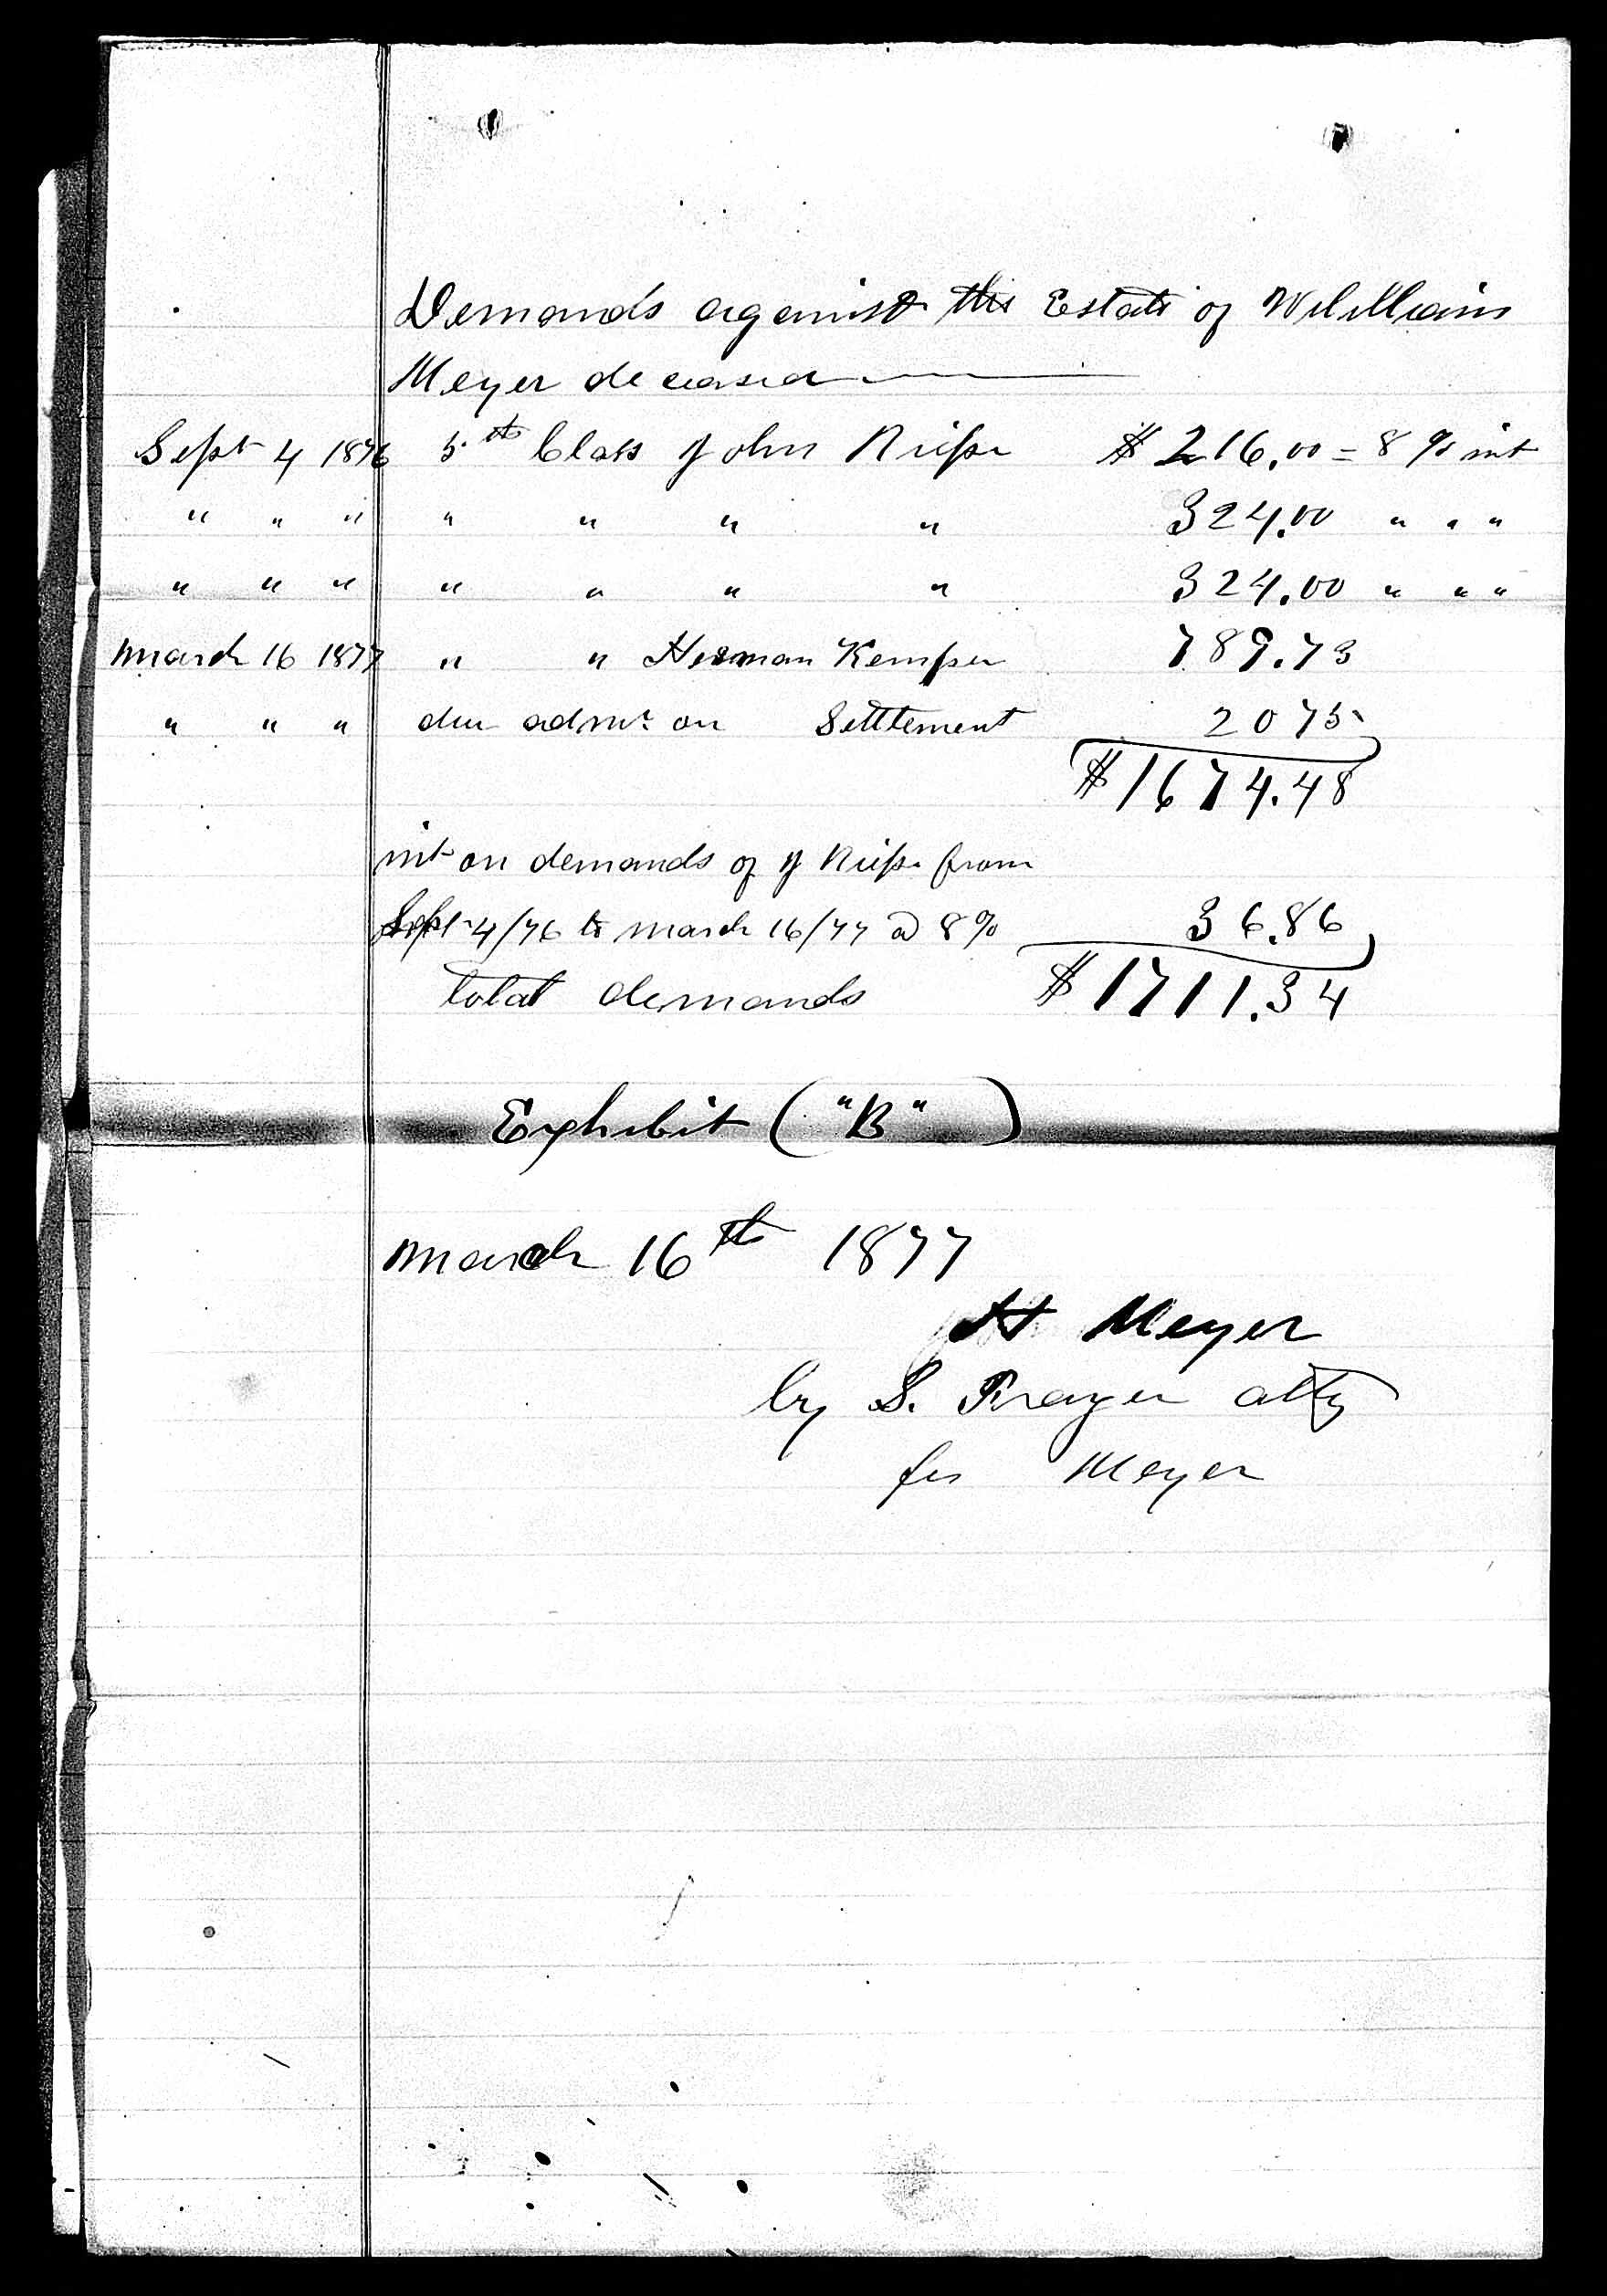 Demands against the Estate of Willliam
Meyer deceased
Sept 4 1876 5th Class John Riepe $216.00 = 8 % int
" " " " " " " 324.00 " " "
" " " " " " " 324.00 " " "
March 16 1877 " " Herman Kemper 789.73
" " " due admr. on Settlement 2075
$1674.48
int on demands of J Riepe from
Sept 4/76 to March 16/77 @ 8% 36.86
total demands $1711.34
Exhibit ("B")
March 16th 1877
H Meyer
by S. Frayer atty
for Meyer